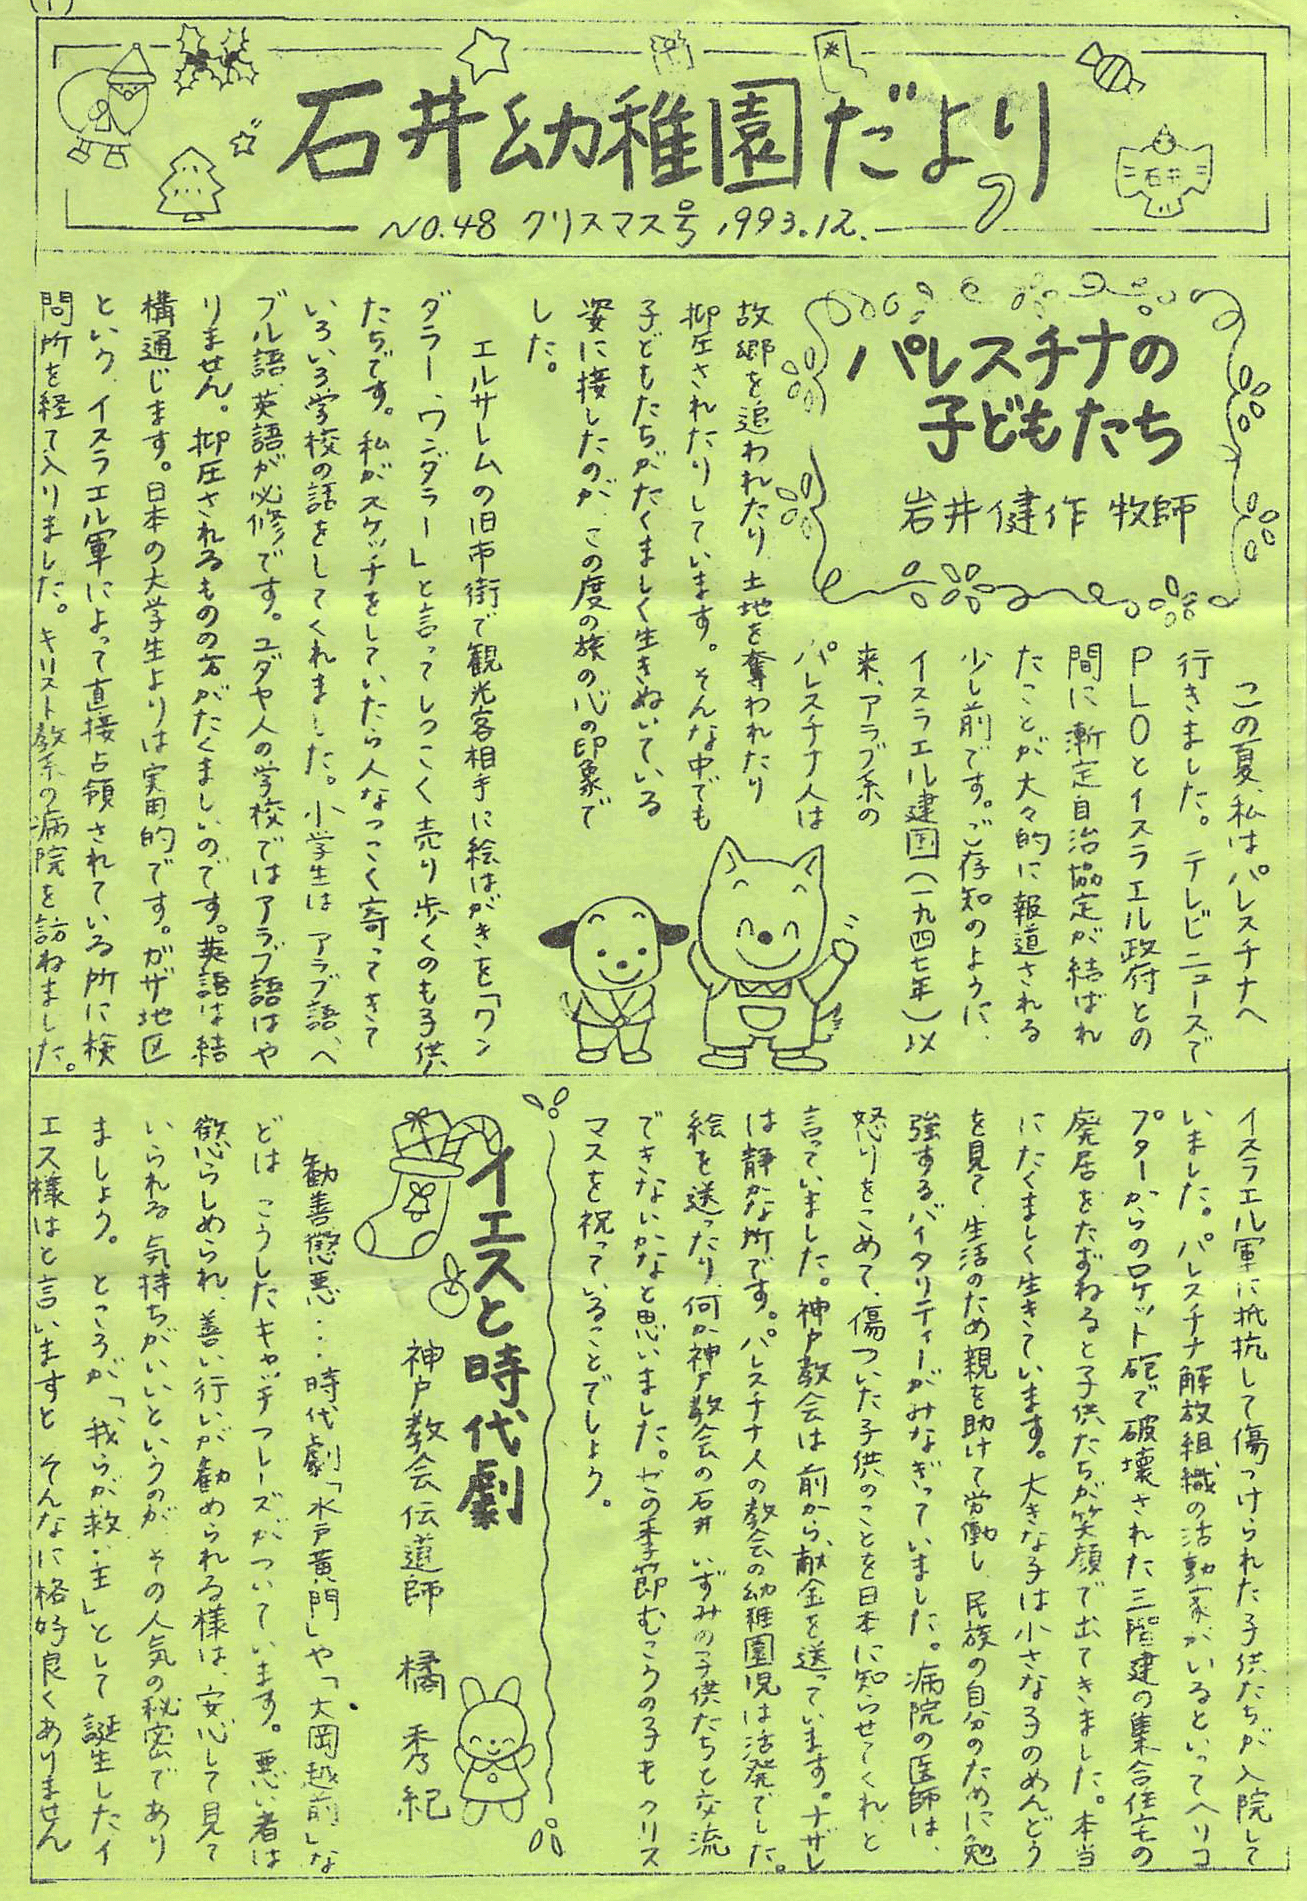 (1)
石井幼稚園だより
NO.48 クリスマス号 1993.12.
石井
パレスチナの
子どもたち
岩井健作 牧師
この夏、私はパレスチナへ
行きました。テレビニュースで
PLOとイスラエル政府との
間に漸定自治協定が結ばれ
たことが大々的に報道される
少し前です。ご存知のように、
イスラエル建国(一九四七年)以
来、アラブ系の
パレスチナ人は
故郷を追われたり、土地を奪われたり
抑圧されたりしています。そんな中でも
子どもたちがたくましく生きぬいている
姿に接したのが、この度の旅の心の印象で
した。
エルサレムの旧市街で観光客相手に絵はがきを「ワン
ダラー、ワンダラー」と言ってしつこく売り歩くのも子供
たちです。私がスケッチをしていたら人なつっこく寄ってきて
いろいろ学校の話をしてくれました。小学生はアラブ語、ヘ
ブル語、英語が必修です。ユダヤ人の学校ではアラブ語はや
りません。抑圧されるものの方がたくましいのです。英語は結
構通じます。日本の大学生よりは実用的です。ガザ地区
という、イスラエル軍によって直接占領されている所に検
問所を経て入りました。キリスト教系の病院を訪ねました。
イスラエル軍に抵抗して傷つけられた子供たちが入院して
いました。パレスチナ解放組織の活動家がいるといってヘリコ
プターからのロケット砲で破壊された三階建の集合住宅の
廃居をたずねると子供たちが笑顔で出てきました。本当
にたくましく生きています。大きな子は小さな子のめんどう
を見て、生活のため親を助けて労働し、民族の自分のために勉
強するバイタリティーがみなぎっていました。病院の医師は、
怒りをこめて、傷ついた子供のことを日本に知らせてくれと
言っていました。神戸教会は前から、献金を送っています。ナザレ
は静かな所です。パレスチナ人の教会の幼稚園児は活発でした。
絵を送ったり、何か神戸教会の石井、いずみの子供たちと交流
できないかなと思いました。この季節むこうの子もクリス
マスを祝っていることでしょう。
イエスと時代劇
神戸教会伝道師 橘 秀紀
勧善懲悪・・・時代劇「水戸黄門」や「大岡越前」な
どは こうしたキャッチフレーズがついています。悪い者は
懲らしめられ、善い行いが勧められる様は、安心して見て
いられる気持ちがいいというのが、その人気の秘密であり
ましょう。ところが「我らが救い主」として誕生したイ
エス様はと言いますと そんなに格好良くありません